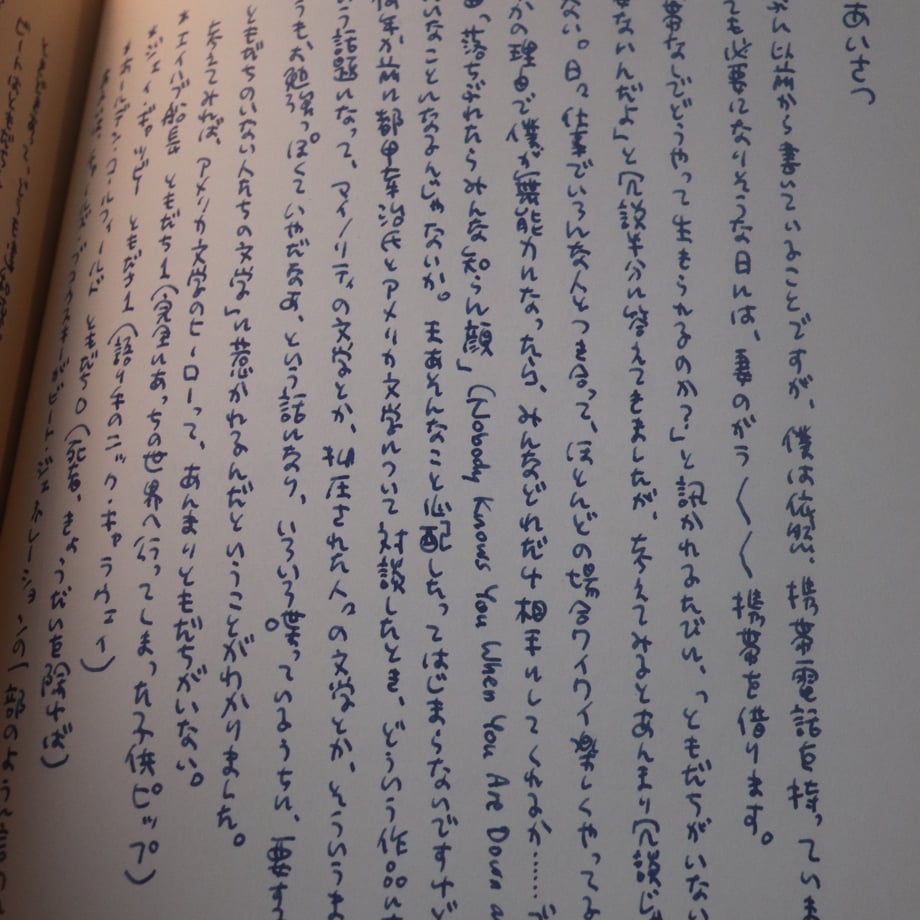 あいさつ
から以前から書いていることですが、僕は依然、携帯電話を持っていま
ても必要になりそうな日には、妻のがラ〱携帯を借ります。
帯なしでどうやって生きられるのか？」と訊かれるたびに、「ともだちがいない
要ないんだよ」と冗談半分に答えてきましたが、考えてみるとあんまり冗談じ
ない。日々仕事でいろんな人とつき合って、ほとんどの場合ワイワイ楽しくやってる
かの理由で僕が無能力になったら、みんなどれだけ相手にしてくれるか……で
曲「落ちぶれたらみんな知らん顔」（Nobody Knows You When You Are Down a
いなことになるんじゃないか。まあそんなこと心配したってはじまらないですけど
何年か前に都甲幸治氏とアメリカ文学について対談したとき、どういう作品に
いう話題になって、マイノリティの文学とか、抑圧された人々の文学とか、そういうま
うもお勉強っぽくていやだなあ、という話になり、いろいろ喋っているうちに、要す
ともだちのいない人たちの文学」に惹かれるんだということがわかりました。
考えてみれば、アメリカ文学のヒーローって、あんまりともだちがいない。
＊エイハブ船長　ともだち1（完全にあっちの世界へ行ってしまった子供ピップ）
＊ジェイ・ギャツビー　ともだち1（語り手のニック・キャラウェイ）
＊ホールデン・コールフィールド　ともだち0（死者、きょうだいを除けば）
ビート・ジェネレーションの一部のよう